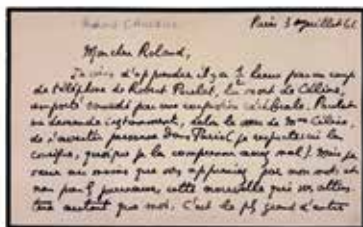 Paris 3 juillet 61
Mon cher Roland,
Je viens d'apprendre il y a ½ heure par un coup
de téléphone de Robert Poulet, la mort de Céline,
emporté samedi par une congestion cérébrale. Poulet
me demande instamment, selon le vœu de Mme Céline
de n'avertir personne dans Paris (je respecterai la
consigne, quoique je la comprenne assez mal). Mais je
veux au moins que vous appreniez par mon mot, et
non par les journaux, cette nouvelle qui vous attris-
tera autant que moi. C'est le plus grand d'entre